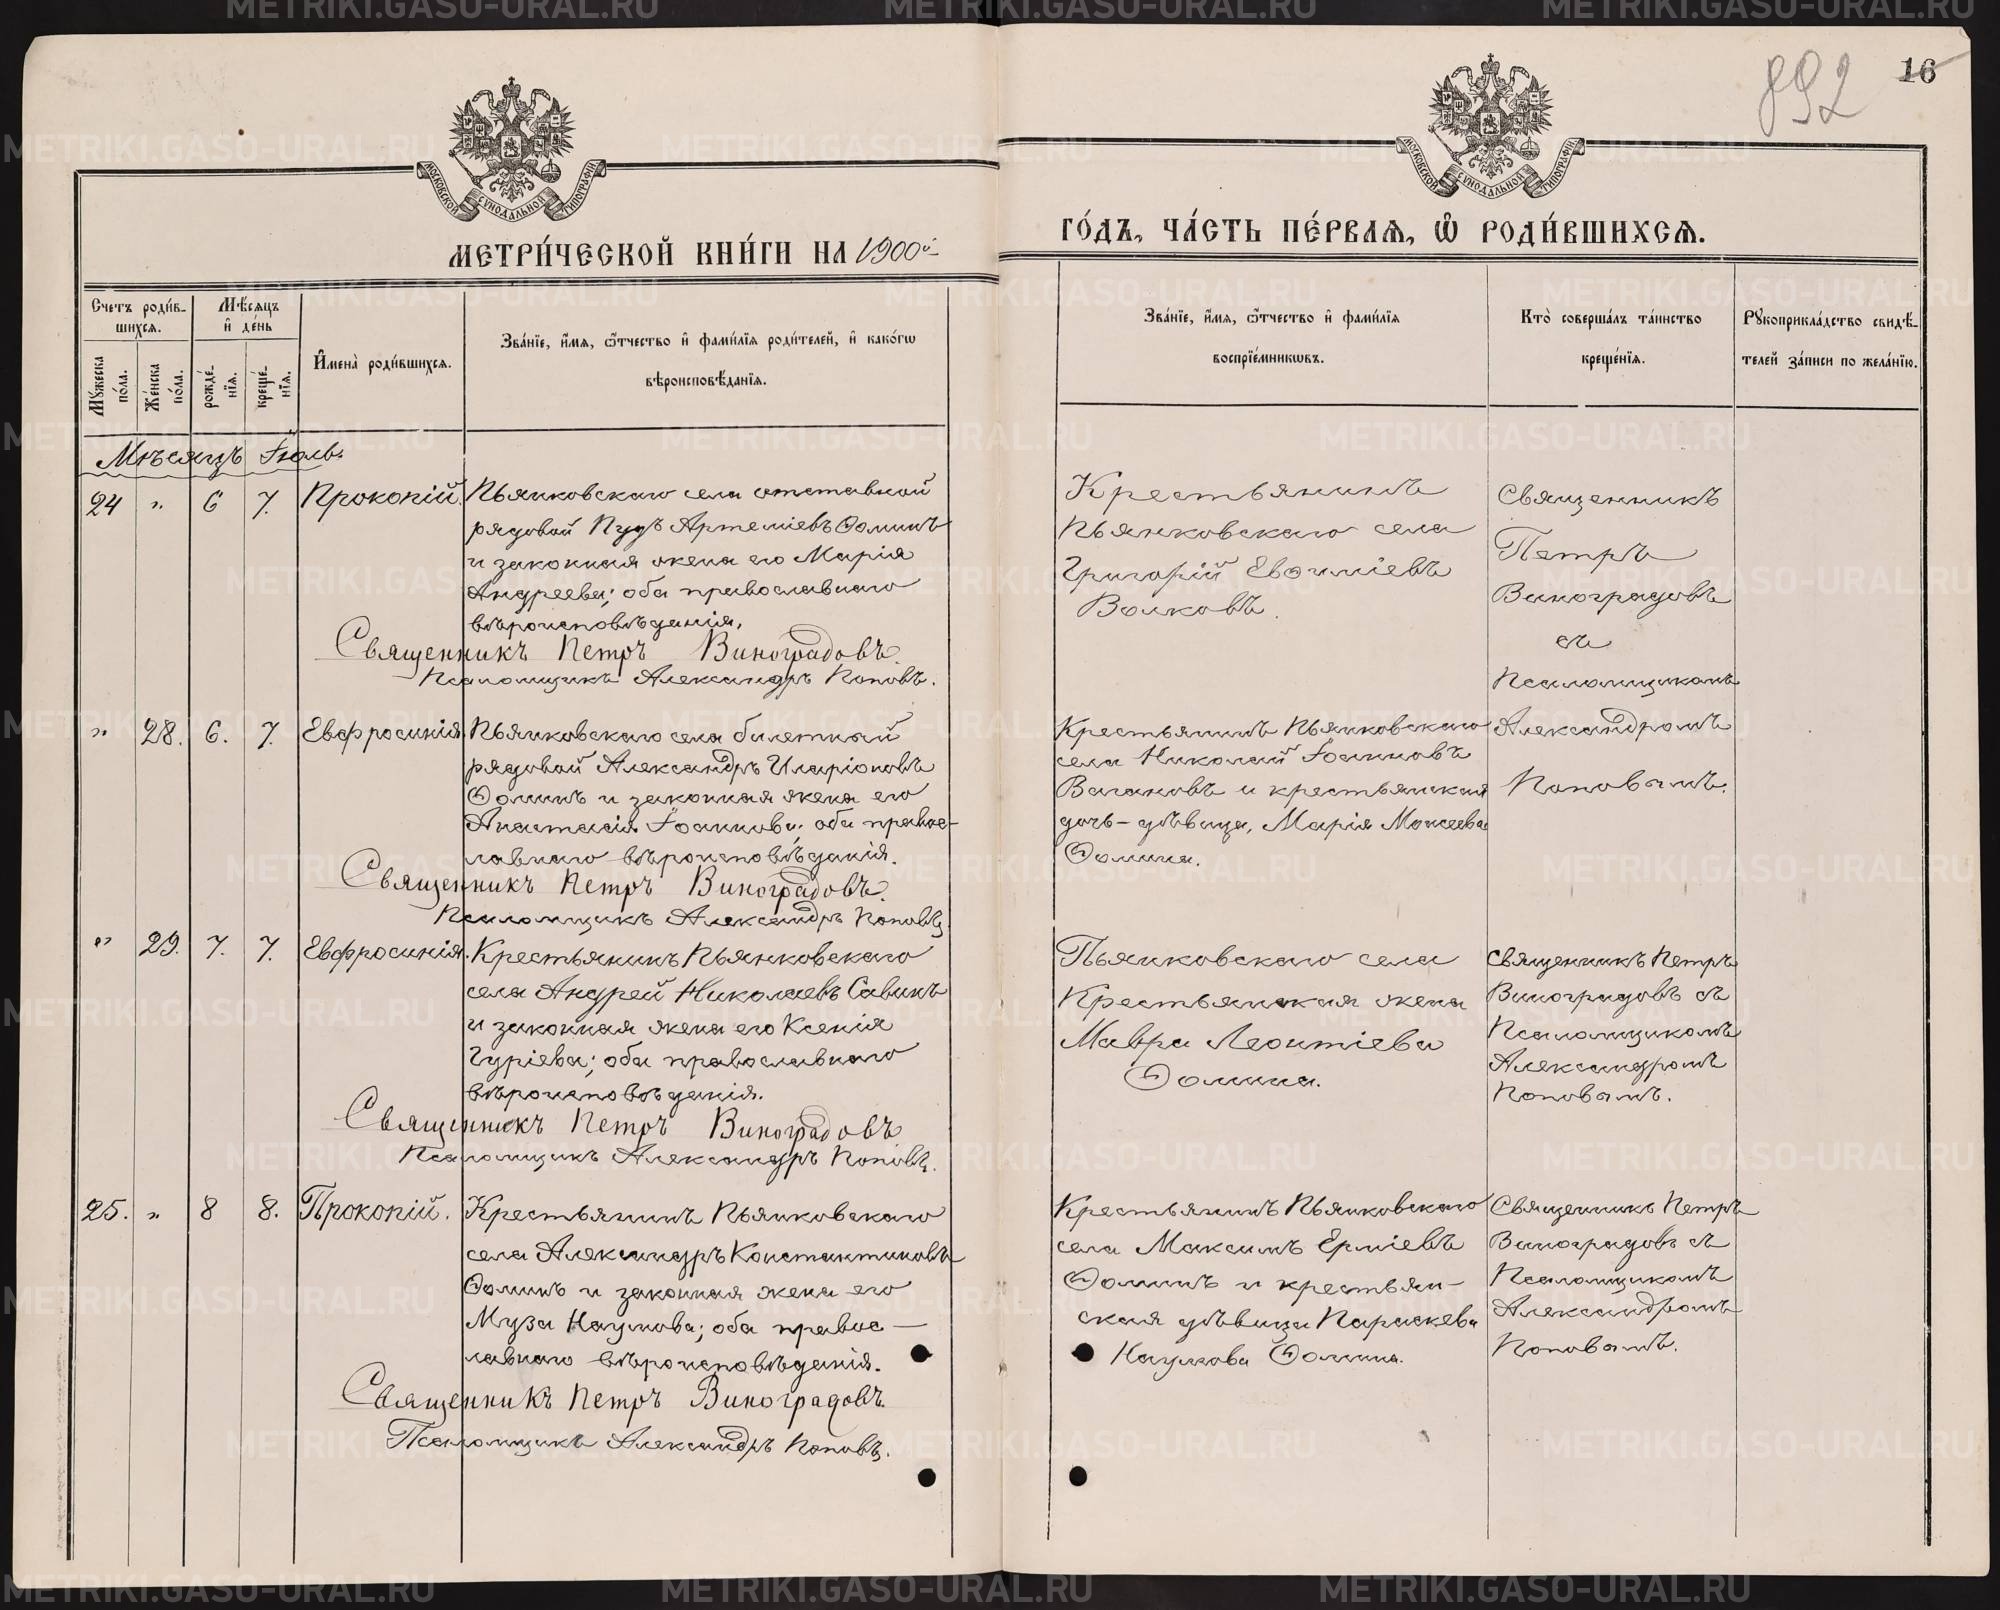 892
16
МОСКОВСКОЙ СѴНОДАЛЬНОЙ ТИПОГРАФІИ
МОСКОВСКОЙ СѴНОДАЛЬНОЙ ТИПОГРАФІИ
МЕТРИ́ЧЕСКОЙ КНИ́ГИ НА 1900й
ГО́ДЪ, ЧА́СТЬ ПЕ́РВАѦ, Ѡ҆ РОДИ́ВШИХСѦ.
Счетъ роди́в-
шихсѧ.
Мꙋ́жеска по́ла.
Же́нска по́ла.
Мѣ́сѧцъ
и҆ де́нь
рожде́-нїѧ.
креще́-нїѧ.
И҆мена̀ роди́вшихсѧ.
Зва́нїе, и҆́мѧ, ѻ҆́тчество и҆ фами́лїѧ роди́телей, и҆ како́гѡ
вѣроисповѣ́данїѧ.
Зва́нїе, и҆́мѧ, ѻ҆́тчество и҆ фами́лїѧ
воспрїе́мникѡвъ.
Кто̀ соверша́лъ та́инство
креще́нїѧ.
Рꙋкоприкла́дство свидѣ́-
телей за́писи по жела́нїю.
Мѣсяцъ Іюль.
24 " 6 7. Прокопій.
Пьянковскаго села отставной
рядовой Пудъ Артеміевъ Ѳоминъ
и законная жена его Марія
Андреева; оба православнаго
вѣроисповѣданія.
Священникъ Петръ Виноградовъ.
Псаломщикъ Александръ Поповъ.
Крестьянинъ
Пьянковскаго села
Григорій Евѳиміевъ
Волковъ.
Священникъ
Петръ
Виноградовъ
съ
Псаломщикомъ
Александромъ
Поповымъ.
" 28. 6. 7. Евфросинія.
Пьянковскаго села билетный
рядовой Александръ Иларіоновъ
Ѳоминъ и законная жена его
Анастасія Іоаннова; оба правос-
лавнаго вѣроисповѣданія.
Священникъ Петръ Виноградовъ.
Псаломщикъ Александръ Поповъ.
Крестьянинъ Пьянковскаго
села Николай Іоанновъ
Вагановъ и крестьянская
дочь-дѣвица, Марія Моисеева
Ѳомина.
" 29. 7. 7. Евфросинія.
Крестьянинъ Пьянковскаго
села Андрей Николаевъ Савинъ
и законная жена его Ксенія
Гуріева; оба православнаго
вѣроисповѣданія.
Священникъ Петръ Виноградовъ
Псаломщикъ Александръ Поповъ.
Пьянковскаго села
Крестьянская жена
Мавра Леонтіева
Ѳомина.
Священникъ Петръ
Виноградовъ съ
Псаломщикомъ
Александромъ
Поповымъ.
25. " 8 8. Прокопій.
Крестьянинъ Пьянковскаго
села Александръ Константиновъ
Ѳоминъ и законная жена его
Муза Наумова; оба правос-
лавнаго вѣроисповѣданія.
Священникъ Петръ Виноградовъ.
Псаломщикъ Александръ Поповъ.
Крестьянинъ Пьянковскаго
села Максимъ Ерміевъ
Ѳоминъ и крестьян-
ская дѣвица Параскева
Наумова Ѳомина.
Священникъ Петръ
Виноградовъ съ
Псаломщикомъ
Александромъ
Поповымъ.
METRIKI.GASO-URAL.RU